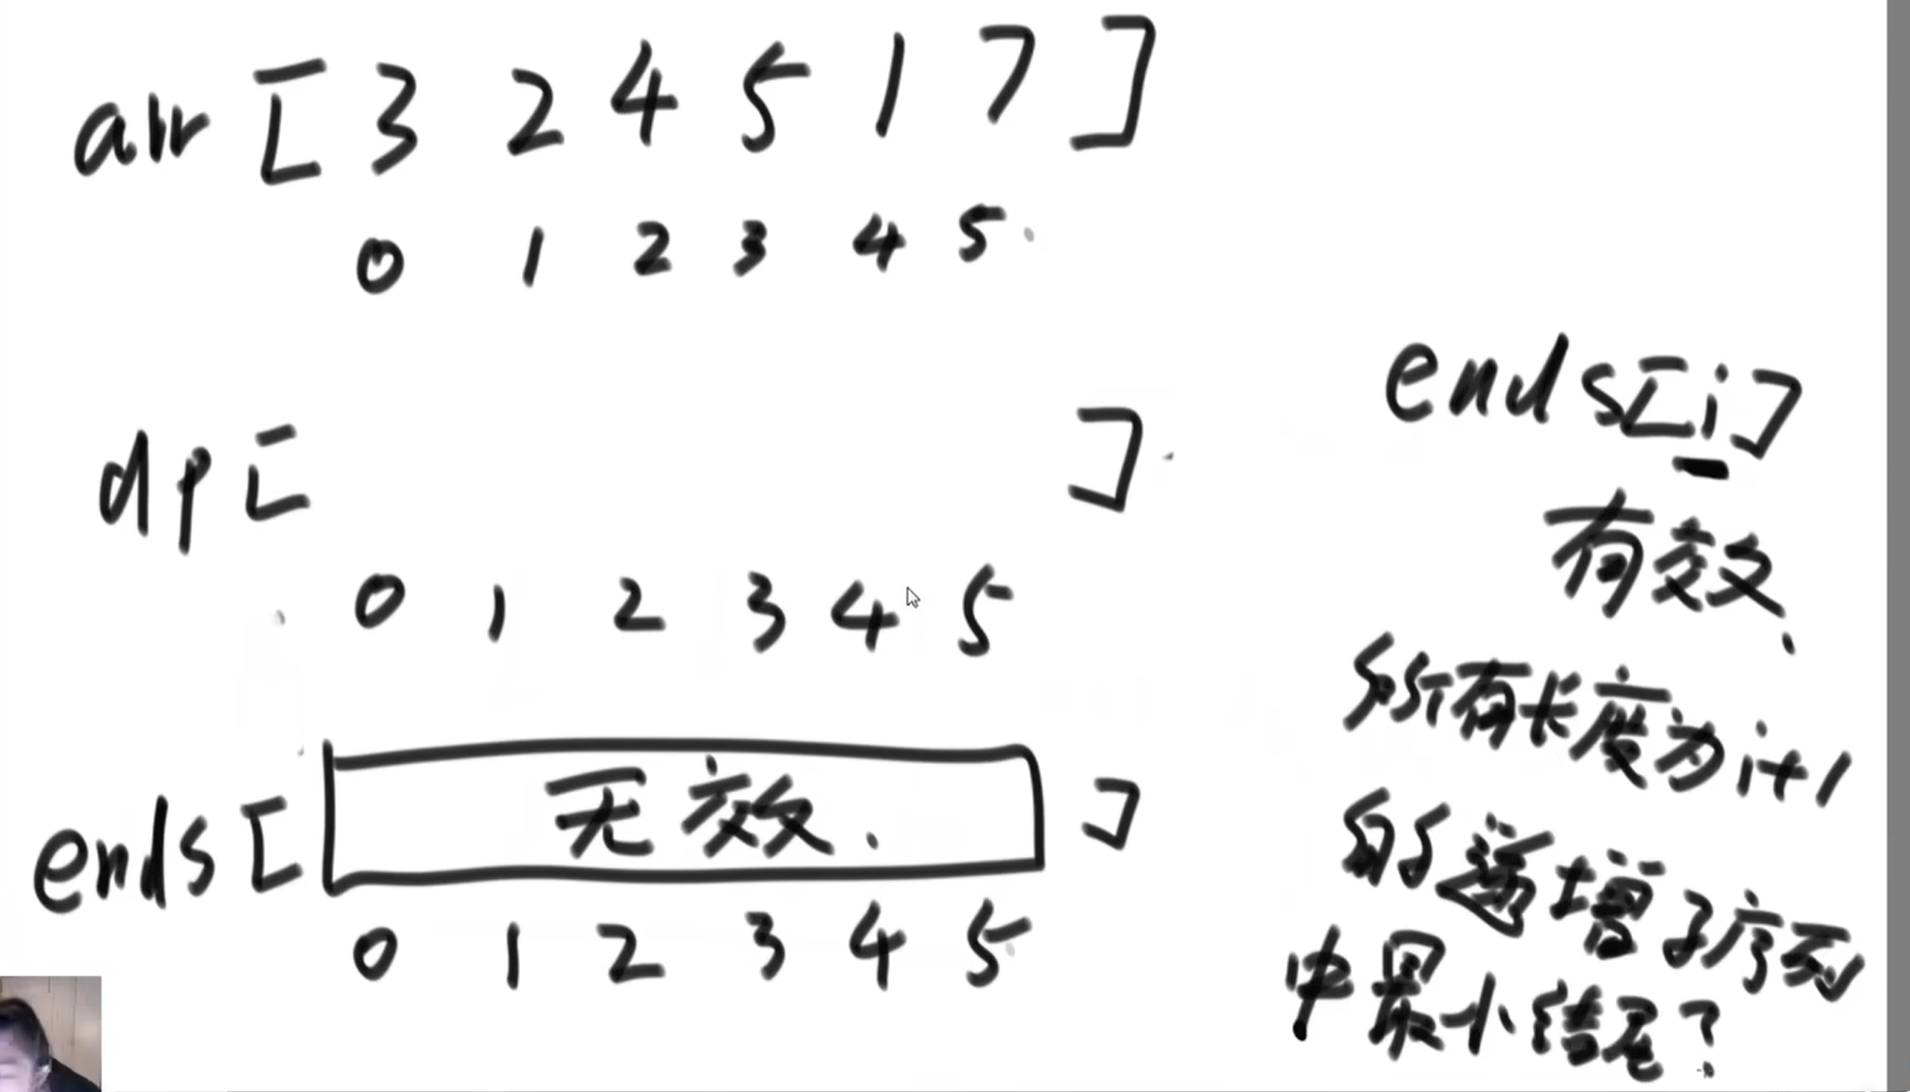 arr [ 3 2 4 5 1 7 ]
0 1 2 3 4 5
dp [ ]
0 1 2 3 4 5
ends [ 无效. ]
0 1 2 3 4 5
ends[i]
有效.
所有长度为i+1
的递增子序列
中最小结尾?